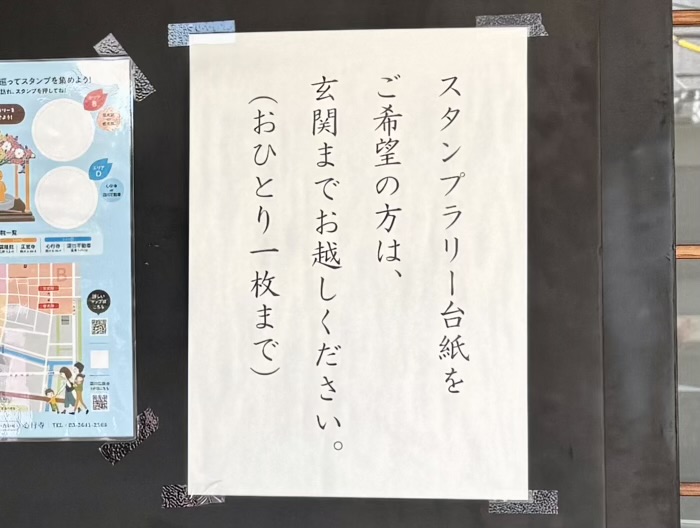 スタンプラリー台紙を
ご希望の方は、
玄関までお越しください。
（おひとり一枚まで）
巡ってスタンプを集めよう!
訪れ、スタンプを押してね!
エリア
D
B
詳しい
マップは
こちら
心行寺 TEL・03-3641-2566